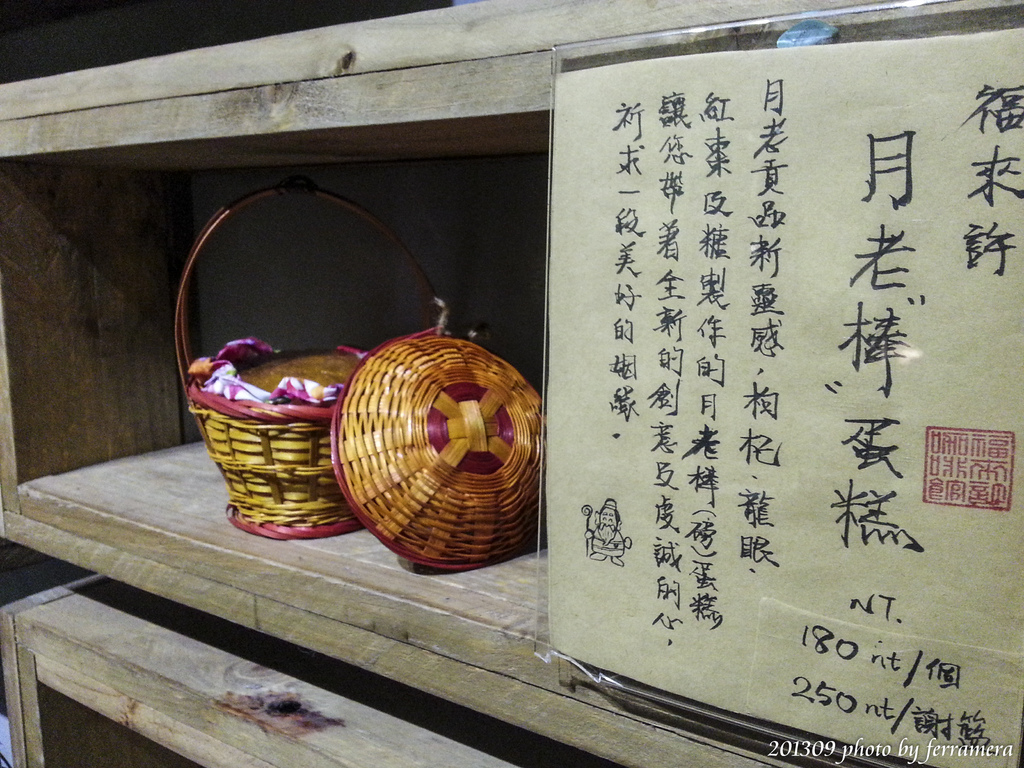 福來許
月老"棒"蛋糕
月老貢品新靈感,枸杞、龍眼、
紅棗及糖製作的月老棒(磅)蛋糕
讓您帶著全新的創意及虔誠的心,
祈求一段美好的姻緣。
NT.
180 nt/個
250 nt/謝籃
201309 photo by ferramera